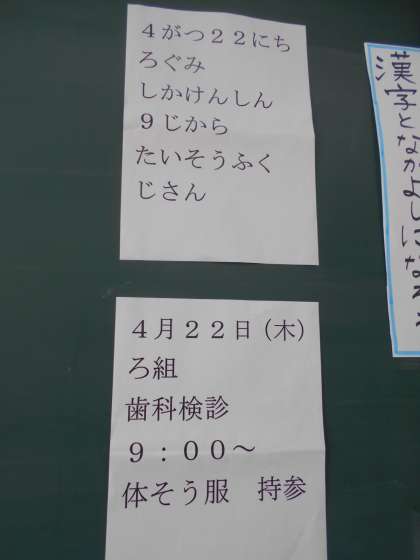 4がつ22にち
ろぐみ
しかけんしん
9じから
たいそうふく
じさん
4月22日(木)
ろ組
歯科検診
9:00～
体そう服　持参
漢字となかよしにな